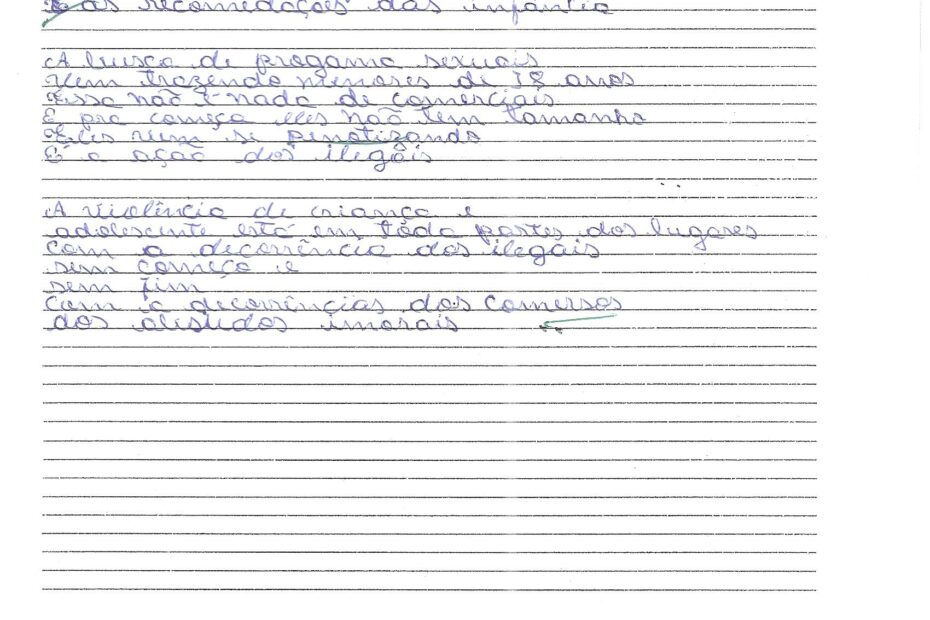 as recomedações das infântia
A busca de progama sexuais
Vem trazendo menores de 18 anos
Essa não é nada de comerciais
E pra começa eles não tem tamanho
Eles vem se penatizando
E a ação dos ilegais
A violência de criança e
adolescente está em toda partes dos lugares
com a decorrência dos ilegais
sem começo e
sem fim
Com a decorrências dos comersos
dos imorais